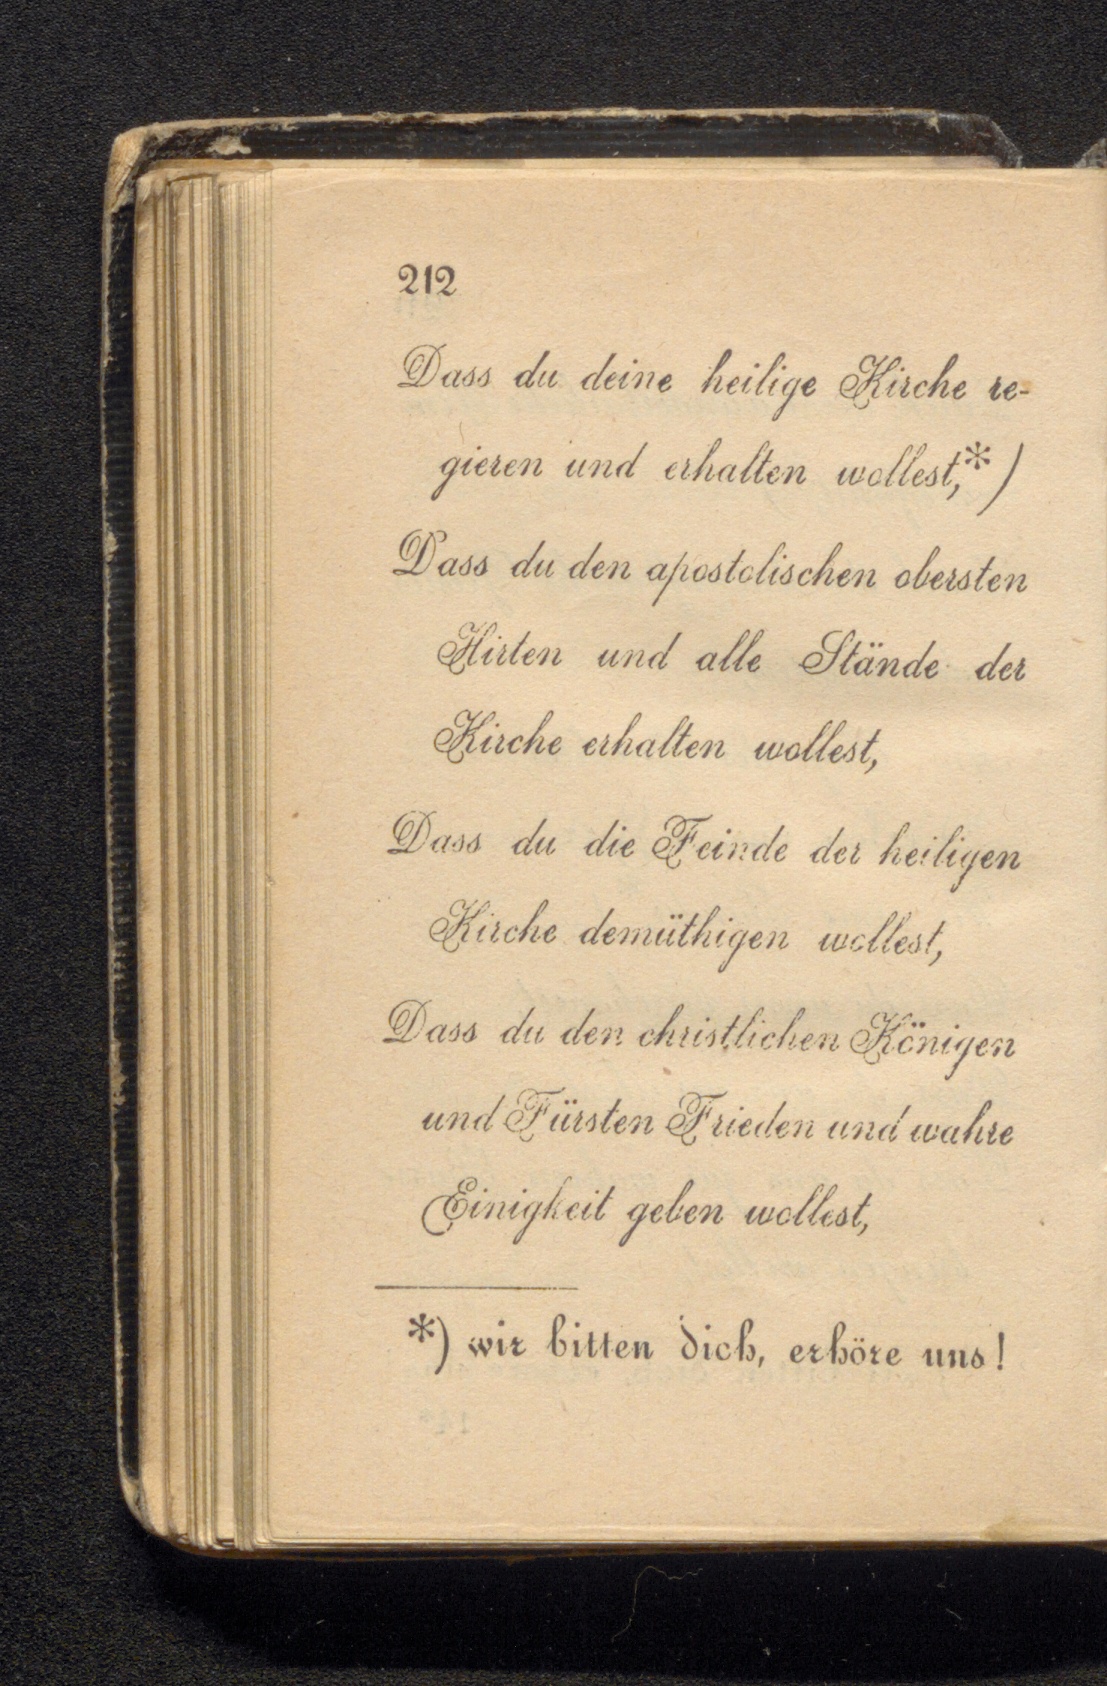 212
Dass du deine heilige Kirche re-
gieren und erhalten wollest,*)
Dass du den apostolischen obersten
Hirten und alle Stände der
Kirche erhalten wollest,
Dass du die Feinde der heiligen
Kirche demüthigen wollest,
Dass du den christlichen Königen
und Fürsten Frieden und wahre
Einigkeit geben wollest,
*) wir bitten dich, erhöre uns!